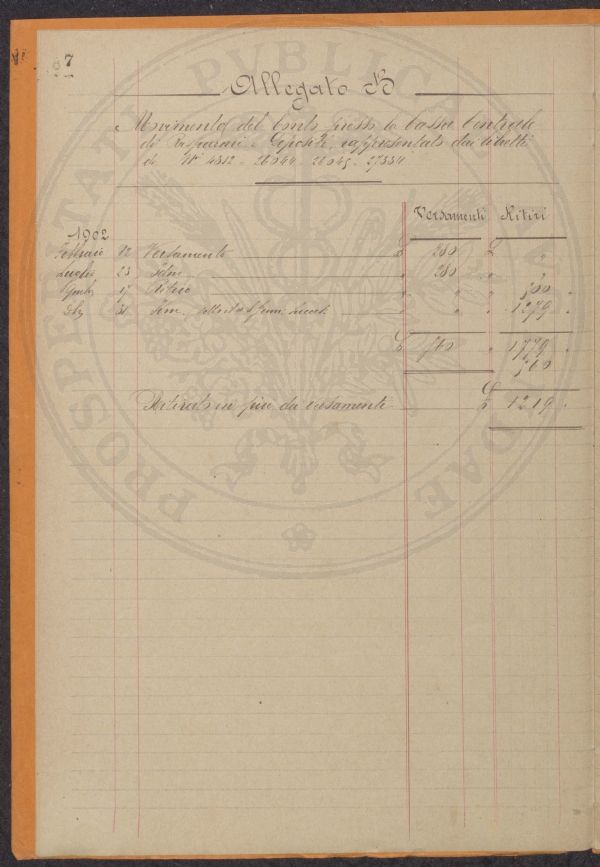 7
Allegato B
Movimento del Conto presso la Cassa Centrale
di Risparmi e Depositi, rappresentato dai libretti
N° 4312 - 26044 - 26045 - 27334
Versamenti Ritiri
1902
Febbraio 12 Versamento £ 280 £ "
Luglio 23 Idem " 280 " "
17 Ritiro " " " 500 "
31 Idem " " " 1279 "
£ 560 " 1779 "
560
Ritirato in più dei versamenti £ 1219 "
PROSPERITATI PVBLICAE